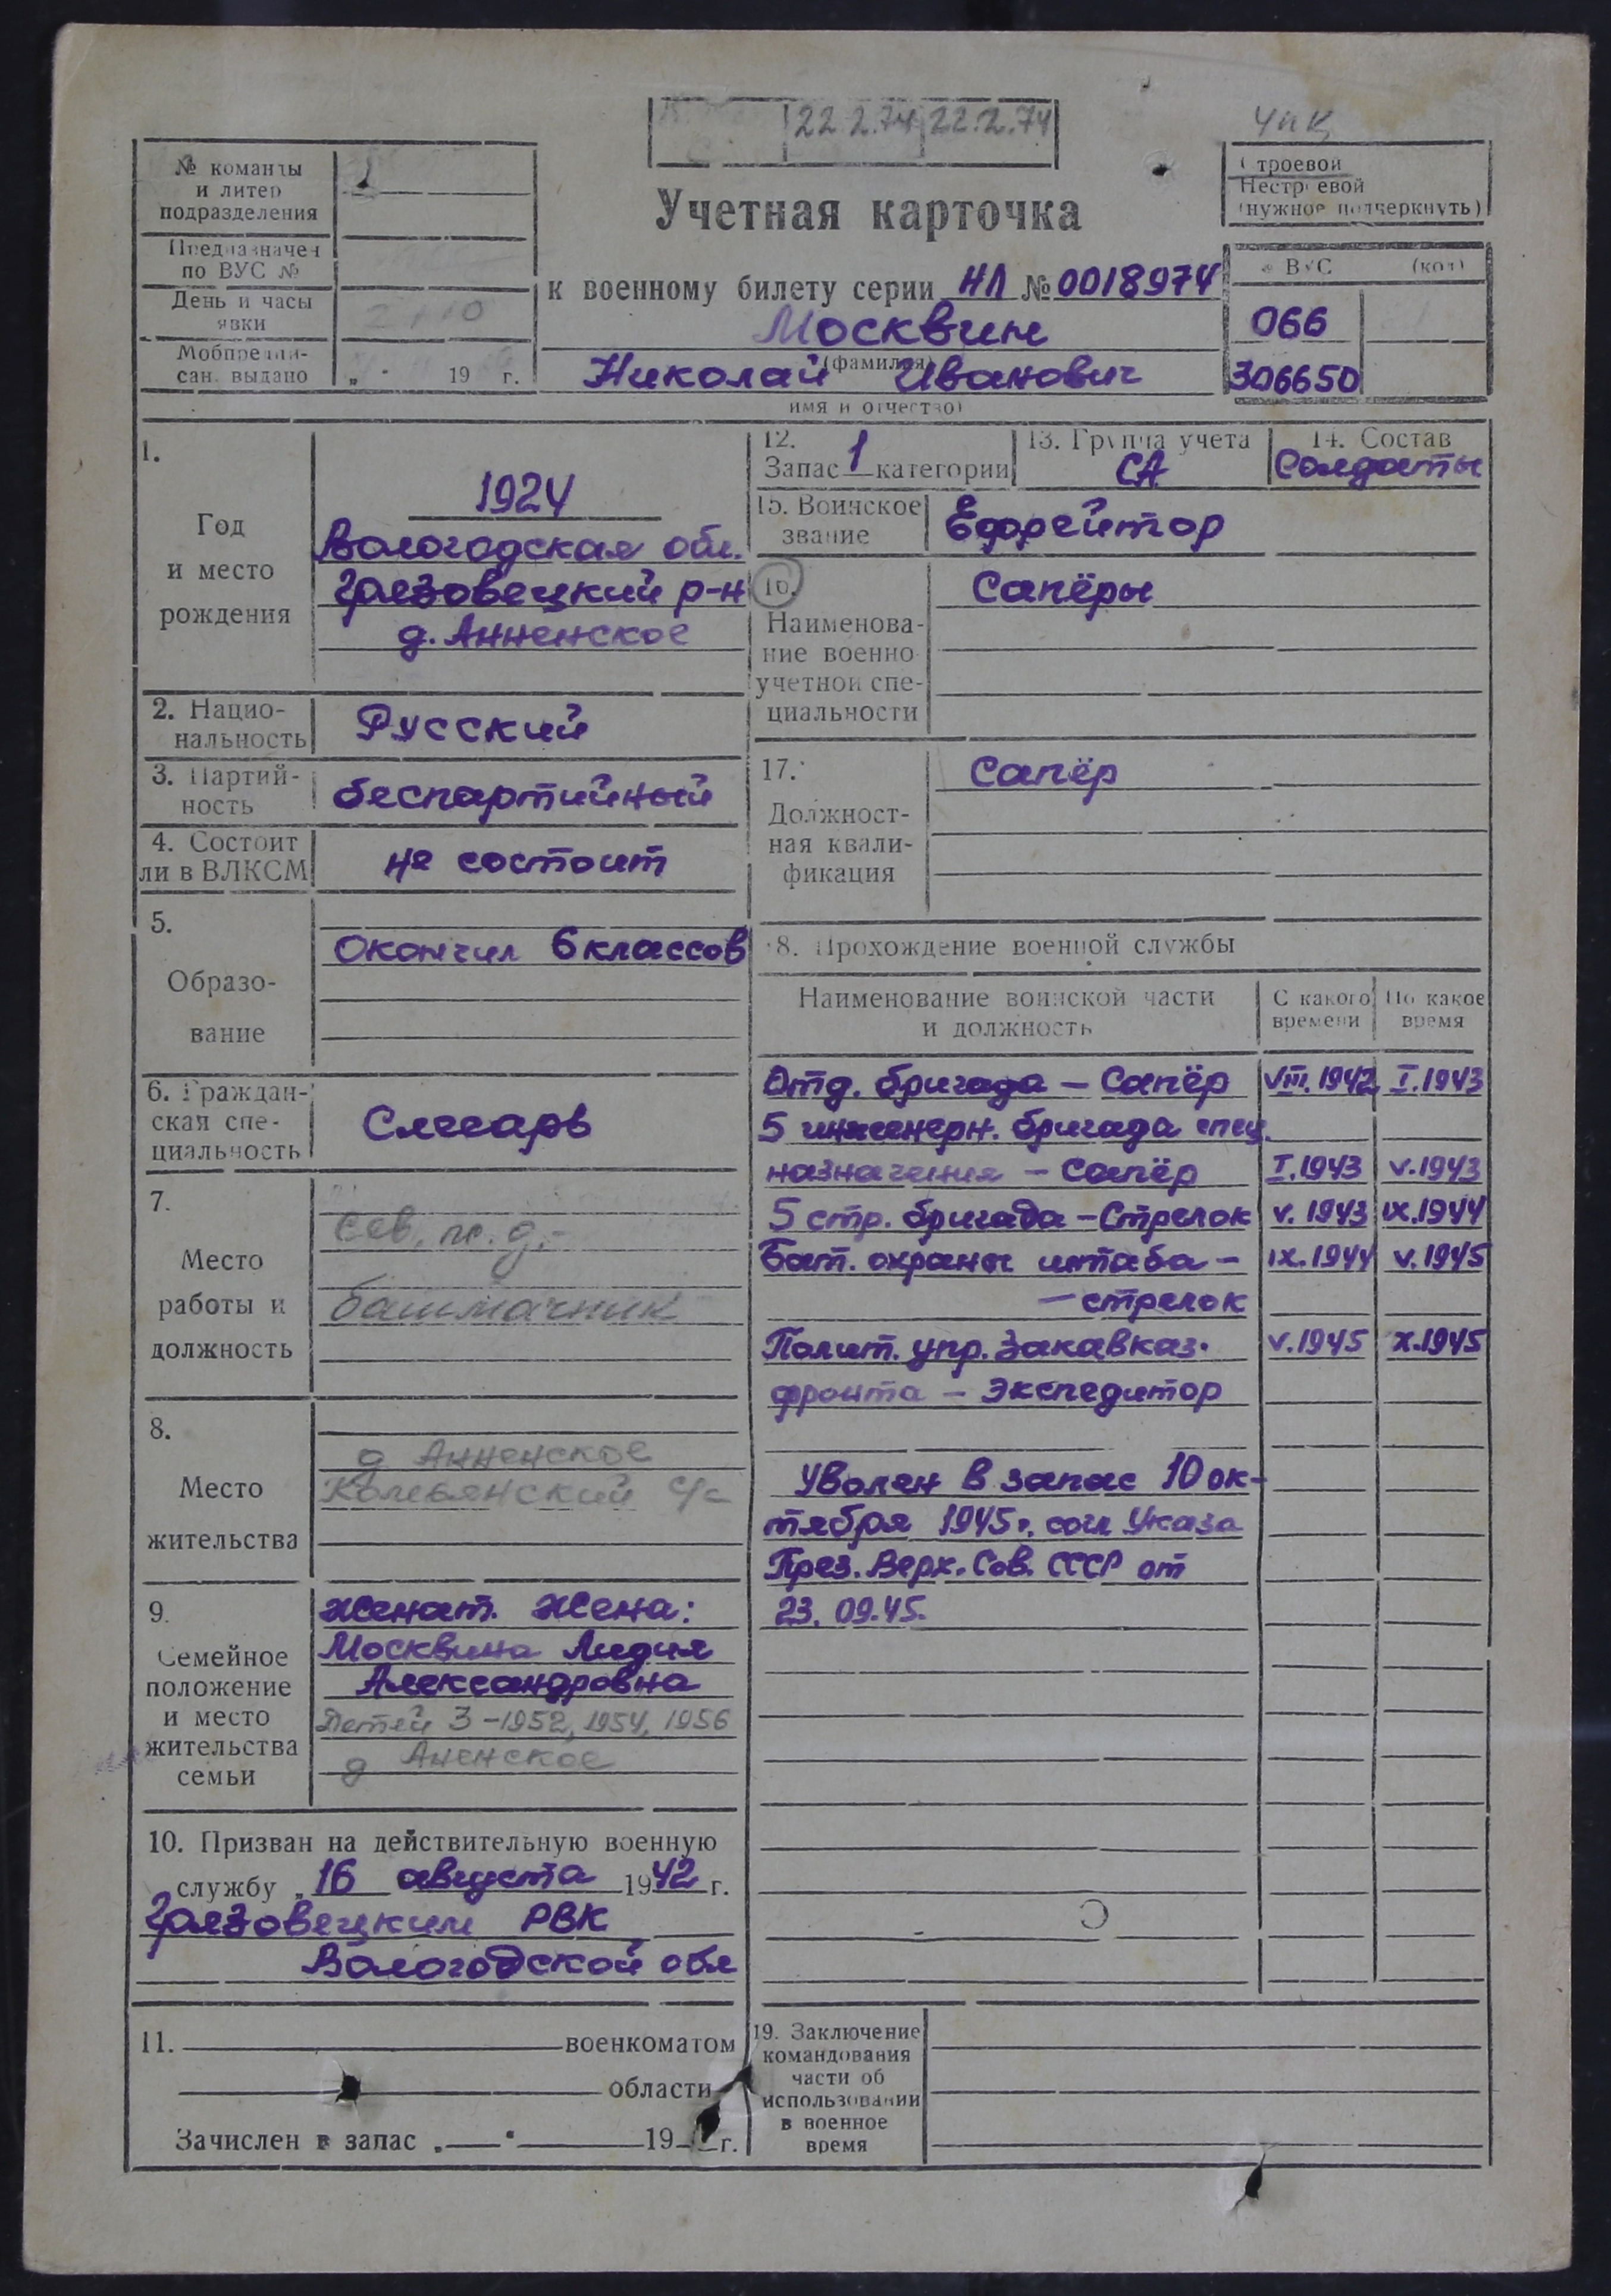 22.2.74 22.2.74
УПК
№ команды
и литер
подразделения
Предназначен
по ВУС №
День и часы
явки
Мобпредпи-
сан. выдано
„ " 19 г.
Строевой
Нестроевой
(нужное подчеркнуть)
Учетная карточка
к военному билету серии НЛ № 0018974
Москвин
(фамилия)
Николай Иванович
имя и отчество)
ВУС (код)
066
306650
1.
Год
и место
рождения
1924
Вологодская обл.
Грязовецкий р-н
д. Анненское
2. Нацио-
нальность
Русский
3. Партий-
ность
беспартийный
4. Состоит
ли в ВЛКСМ
не состоит
5.
Образо-
вание
Окончил 6 классов
6. Граждан-
ская спе-
циальность
Слесарь
7.
Место
работы и
должность
Сев. ж. д. -
башмачник
8.
Место
жительства
д Анненское
с/с
9.
Семейное
положение
и место
жительства
семьи
Женат. Жена:
Москвина Лидия
Александровна
Детей 3 - 1952, 1954, 1956
д Аненское
10. Призван на действительную военную
службу „ 16 августа 1942 г.
Грязовецким РВК
Вологодской обл
11. военкоматом
области
Зачислен в запас „ " 19 г.
12.
Запас 1 категории
13. Группа учета
СА
14. Состав
Солдаты
15. Воинское
звание
Ефрейтор
16.
Наименова-
ние военно
учетной спе-
циальности
Сапёры
17.
Должност-
ная квали-
фикация
Сапёр
18. Прохождение военной службы
Наименование воинской части
и должность
С какого
времени
По какое
время
Отд. бригада - Сапёр VIII.1942 I.1943
5 инженерн. бригада спец.
назначения - Сапёр I.1943 V.1943
5 стр. бригада - Стрелок V.1943 IX.1944
Бат. охраны штаба - IX.1944 V.1945
- стрелок
Полит. упр. Закавказ. V.1945 X.1945
фронта - Экспедитор
Уволен в запас 10 ок-
тября 1945 г. согл Указа
През. Верх. Сов. СССР от
23.09.45.
19. Заключение
командования
части об
использовании
в военное
время